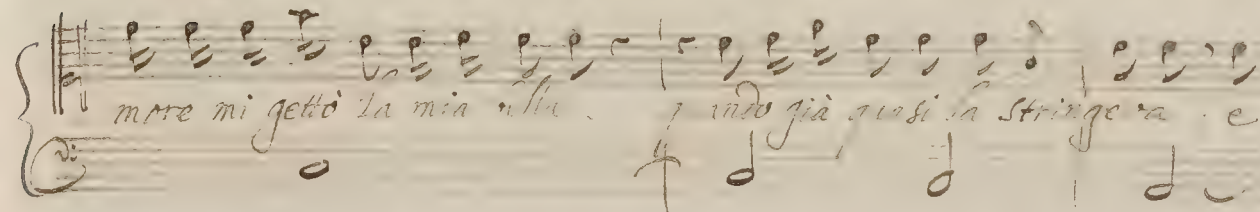 more mi gettò la mia già la stringeva e